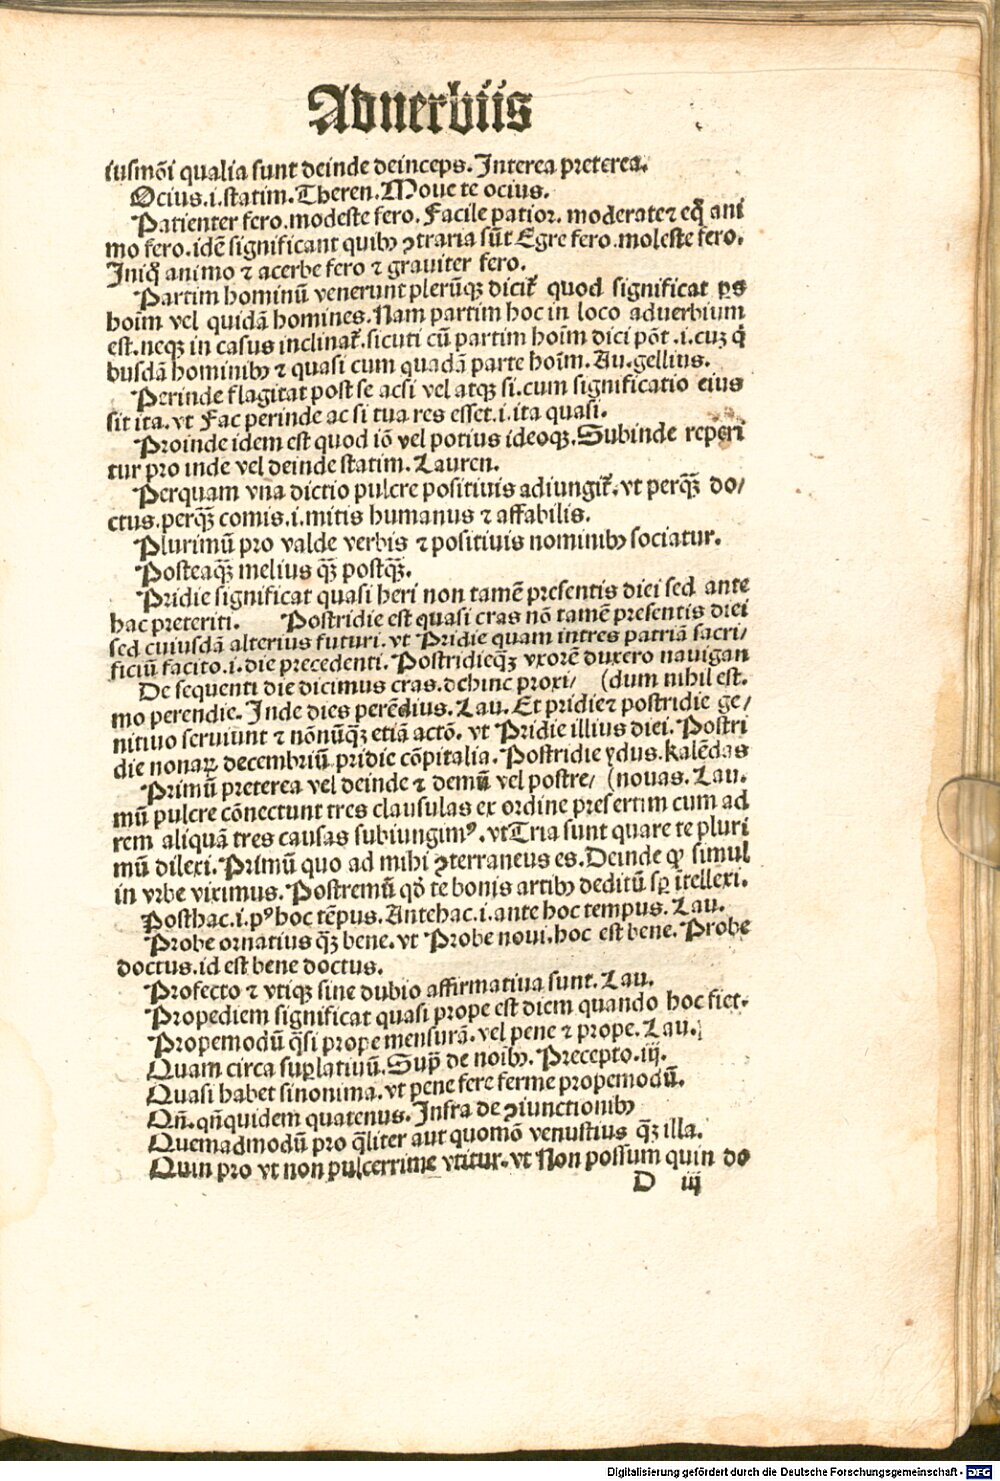 Aduerbiis
iusmōi qualia sunt deinde deinceps. Interea preterea.
Ocius .i. statim. Theren. Moue te ocius.
Patienter fero. modeste fero. Facile patior. moderate ⁊ eq̄ ani
mo fero. idē significant quibꝰ ꝯtraria sūt Egre fero. moleste fero.
Iniq̄ animo ⁊ acerbe fero ⁊ grauiter fero.
Partim hominū venerunt plerūqꝫ dicit̄ quod significat ꝑs
hoīm vel quidā homines. Nam partim hoc in loco aduerbium
est. neqꝫ in casus inclinat̄. sicuti cū partim hoīm dici pōt .i. cuꝫ q̇
busdā hominibꝰ ⁊ quasi cum quadā parte hoīm. Au. gellius.
Perinde flagitat post se acsi vel atqꝫ si. cum significatio eius
sit ita. vt Fac perinde ac si tua res esset .i. ita quasi.
Proinde idem est quod iō vel potius ideoqꝫ. Subinde reperi
tur pro inde vel deinde statim. Lauren.
Perquam vna dictio pulcre positiuis adiungit̄. vt perqꝫ̄ do/
ctus. perqꝫ̄ comis .i. mitis humanus ⁊ affabilis.
Plurimū pro valde verbis ⁊ positiuis nominibꝰ sociatur.
Posteaqꝫ̄ melius qꝫ̄ postqꝫ̄.
Pridie significat quasi heri non tamē presentis diei sed ante
hac preteriti. Postridie est quasi cras nō tamē presentis diei
sed cuiusdā alterius futuri. vt Pridie quam intres patriā sacri/
ficiū facito .i. die precedenti. Postridieqꝫ̄ vxorē duxero nauigan
De sequenti die dicimus cras. dehinc proxi/ (dum nihil est.
mo perendie. Inde dies perēdius. Lau. Et pridie ⁊ postridie ge/
nitiuo seruiunt ⁊ nōnūqꝫ̄ etiā actō. vt Pridie illius diei. Postri
die nonaꝝ decembriū pridie cōpitalia. Postridie ydus. kalēdas
Primū preterea vel deinde ⁊ demū vel postre/ (nouas. Lau.
mū pulcre cōnectunt tres clausulas ex ordine presertim cum ad
rem aliquā tres causas subiungimꝰ. vt Tria sunt quare te pluri
mū dilexi. Primū quo ad mihi ꝯterraneus es. Deinde ꝙ simul
in vrbe viximus. Postremū qd̓ te bonis artibꝰ deditū sꝑ ītellexi.
Posthac .i. pꝰ hoc tēpus. Antehac .i. ante hoc tempus. Lau.
Probe ornatius qꝫ̄ bene. vt Probe noui. hoc est bene. Probe
doctus. id est bene doctus.
Profecto ⁊ vtiqꝫ sine dubio affirmatiua sunt. Lau.
Propediem significat quasi prope est diem quando hoc fiet.
Propemodū q̄si prope mensurā. vel pene ⁊ prope. Lau.
Quam circa suꝑlatiuū. Supͣ de noībꝰ. Precepto .iij.
Quasi habet sinonima. vt pene fere ferme propemodū.
Qn̄. qn̄quidem quatenus. Infra de ꝯiunctionibꝰ
Quemadmodū pro q̄liter aut quomō venustius qꝫ̄ illa.
Quin pro vt non pulcerrime vtitur. vt Non possum quin do
D iij
Digitalisierung gefördert durch die Deutsche Forschungsgemeinschaft - DFG